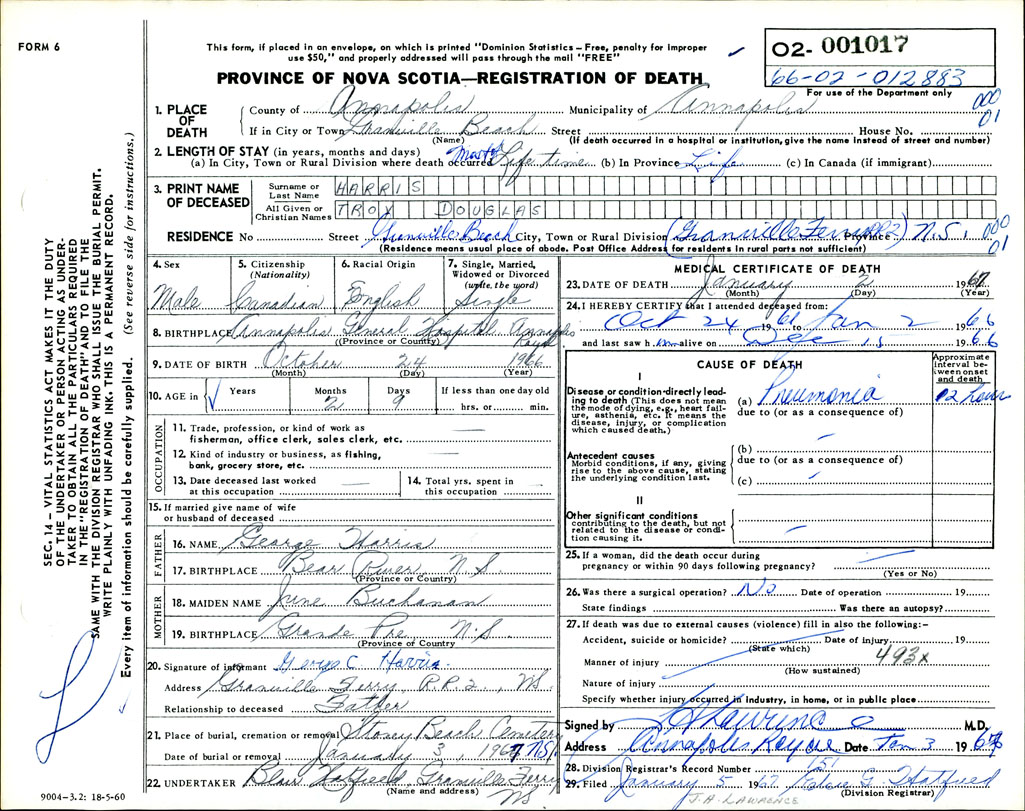 FORM 6
This form, if placed in an envelope, on which is printed "Dominion Statistics – Free, penalty for improper
use $50," and properly addressed will pass through the mail "FREE"
PROVINCE OF NOVA SCOTIA—REGISTRATION OF DEATH
02- 001017
66-02-012883
For use of the Department only
000
01
1. PLACE OF DEATH
County of Annapolis Municipality of Annapolis
If in City or Town Granville Beach Street House No.
(Name) (If death occurred in a hospital or institution, give the name instead of street and number)
2. LENGTH OF STAY (in years, months and days)
(a) In City, Town or Rural Division where death occurred Most of Life time (b) In Province Life (c) In Canada (if immigrant)
3. PRINT NAME OF DECEASED
Surname or Last Name HARRIS
All Given or Christian Names TROY DOUGLAS
RESIDENCE No Street Granville Beach City, Town or Rural Division (Granville Ferry R2) Province N.S. 000
01
(Residence means usual place of abode. Post Office Address for residents in rural parts not sufficient)
4. Sex
Male
5. Citizenship
(Nationality)
Canadian
6. Racial Origin
English
7. Single, Married,
Widowed or Divorced
(write the word)
Single
8. BIRTHPLACE Annapolis General Hospital Annapolis Royal
(Province or Country)
9. DATE OF BIRTH October 24 1966
(Month) (Day) (Year)
10. AGE in Years Months Days If less than one day old
2 9 hrs. or min.
OCCUPATION
11. Trade, profession, or kind of work as
fisherman, office clerk, sales clerk, etc.
12. Kind of industry or business, as fishing,
bank, grocery store, etc.
13. Date deceased last worked
at this occupation
14. Total yrs. spent in
this occupation
15. If married give name of wife
or husband of deceased
FATHER
16. NAME George Harris
17. BIRTHPLACE Bear River N S
(Province or Country)
MOTHER
18. MAIDEN NAME June Buchanan
19. BIRTHPLACE Grande Pre N.S
(Province or Country)
20. Signature of informant George C. Harris
Address Granville Ferry R.R.2., NS
Relationship to deceased Father
21. Place of burial, cremation or removal Stoney Beach Cemetery
Date of burial or removal January 3 1967 N.S.
22. UNDERTAKER Blair Hatfield, Granville Ferry
(Name and address) NS
9004-3.2: 18-5-60
MEDICAL CERTIFICATE OF DEATH
23. DATE OF DEATH January 2 1967
(Month) (Day) (Year)
24. I HEREBY CERTIFY that I attended deceased from:
Oct 24 1966 to Jan 2 1966
and last saw him alive on Dec 15 1966
CAUSE OF DEATH
Approximate
interval between onset
and death
I
Disease or condition directly leading to death (This does not mean
the mode of dying, e.g., heart failure, asthenia, etc. It means the
disease, injury, or complication
which caused death.)
(a) Pneumonia 12 hours
due to (or as a consequence of)
Antecedent causes
Morbid conditions, if any, giving
rise to the above cause, stating
the underlying condition last.
(b)
due to (or as a consequence of)
(c)
II
Other significant conditions
contributing to the death, but not
related to the disease or condition causing it.
25. If a woman, did the death occur during
pregnancy or within 90 days following pregnancy?
(Yes or No)
26. Was there a surgical operation? No Date of operation 19
State findings Was there an autopsy?
27. If death was due to external causes (violence) fill in also the following:-
Accident, suicide or homicide? Date of injury 19
(State which)
493x
Manner of injury
(How sustained)
Nature of injury
Specify whether injury occurred in industry, in home, or in public place
Signed by Lawrence M.D.
Address Annapolis Royal Date Jan 3 1967
28. Division Registrar's Record Number 151
29. Filed January 5 1967 G. Hatfield
(Division Registrar)
J.A. LAWRENCE
SEC. 14 – VITAL STATISTICS ACT MAKES IT THE DUTY
OF THE UNDERTAKER OR PERSON ACTING AS UNDERTAKER TO OBTAIN ALL THE PARTICULARS REQUIRED
IN THE "REGISTRATION OF DEATH" AND TO FILE THE
SAME WITH THE DIVISION REGISTRAR WHO SHALL ISSUE THE BURIAL PERMIT.
WRITE PLAINLY WITH UNFADING INK. THIS IS A PERMANENT RECORD.
Every item of information should be carefully supplied. (See reverse side for instructions.)